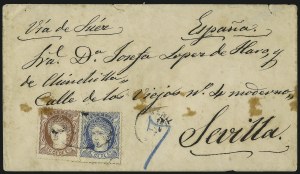 Via de Suéz España.
Sra. Da. Josefa Lopez de Haro, y
de Chinchilla
Calle de los Viejos nº 4 moderno,
Sevilla.